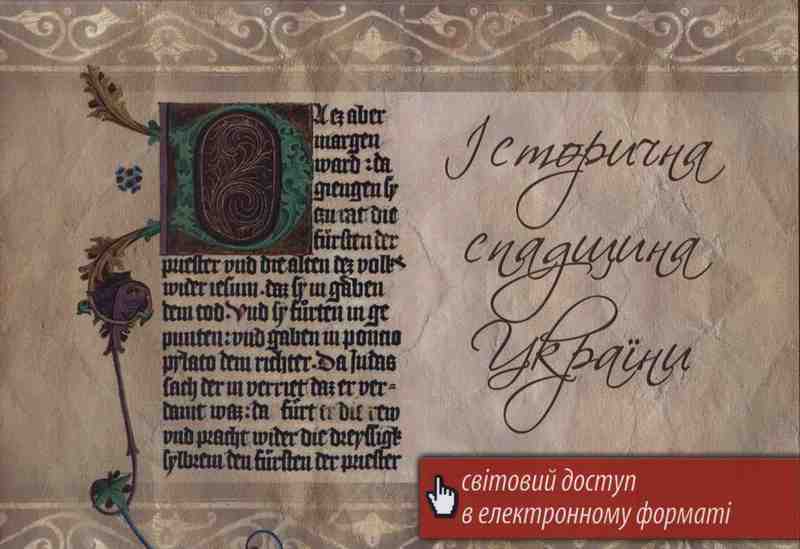 Da ez aber
margen
ward : da
giengen sy
zu rat die
fürsten der
priester vnd die alten dez volks
wider iesum . daz sy in gaben
dem tod . Vnd sy fürten in ge
punten : vnd gaben in poncio
pylato dem richter . Da Judas
sach der in verriet daz er ver=
damt waz : da fürt er die rew
vnd pracht wider die dreyssigk
sylbrein den fürsten der priester
Історична
спадщина
України
світовий доступ
в електронному форматі